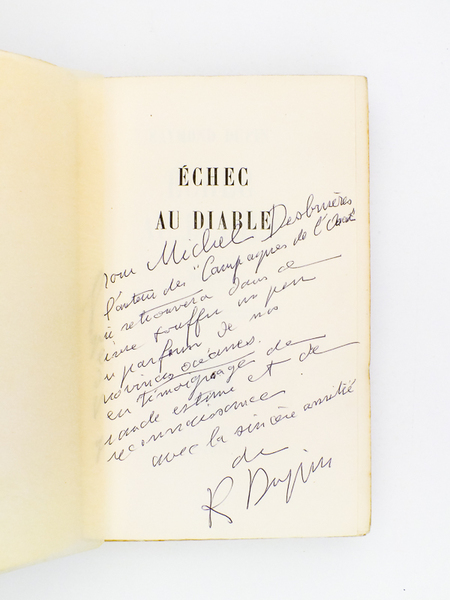 ÉCHEC
AU DIABLE
our Michel Desbruères
l'auteur des "Campagnes de l'Ouest"
i retrouvera dans ce
ivre souffler un peu
u parfum de nos
rovinces océanes.
en témoignage de
rande estime et de
reconnaissance
avec la sincère amitié
de
R